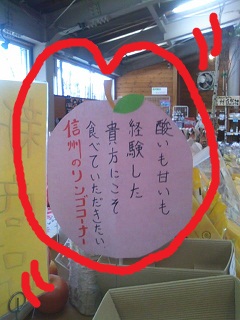 酸いも甘いも
経験した
貴方にこそ
食べていただきたい、
信州のリンゴコーナー